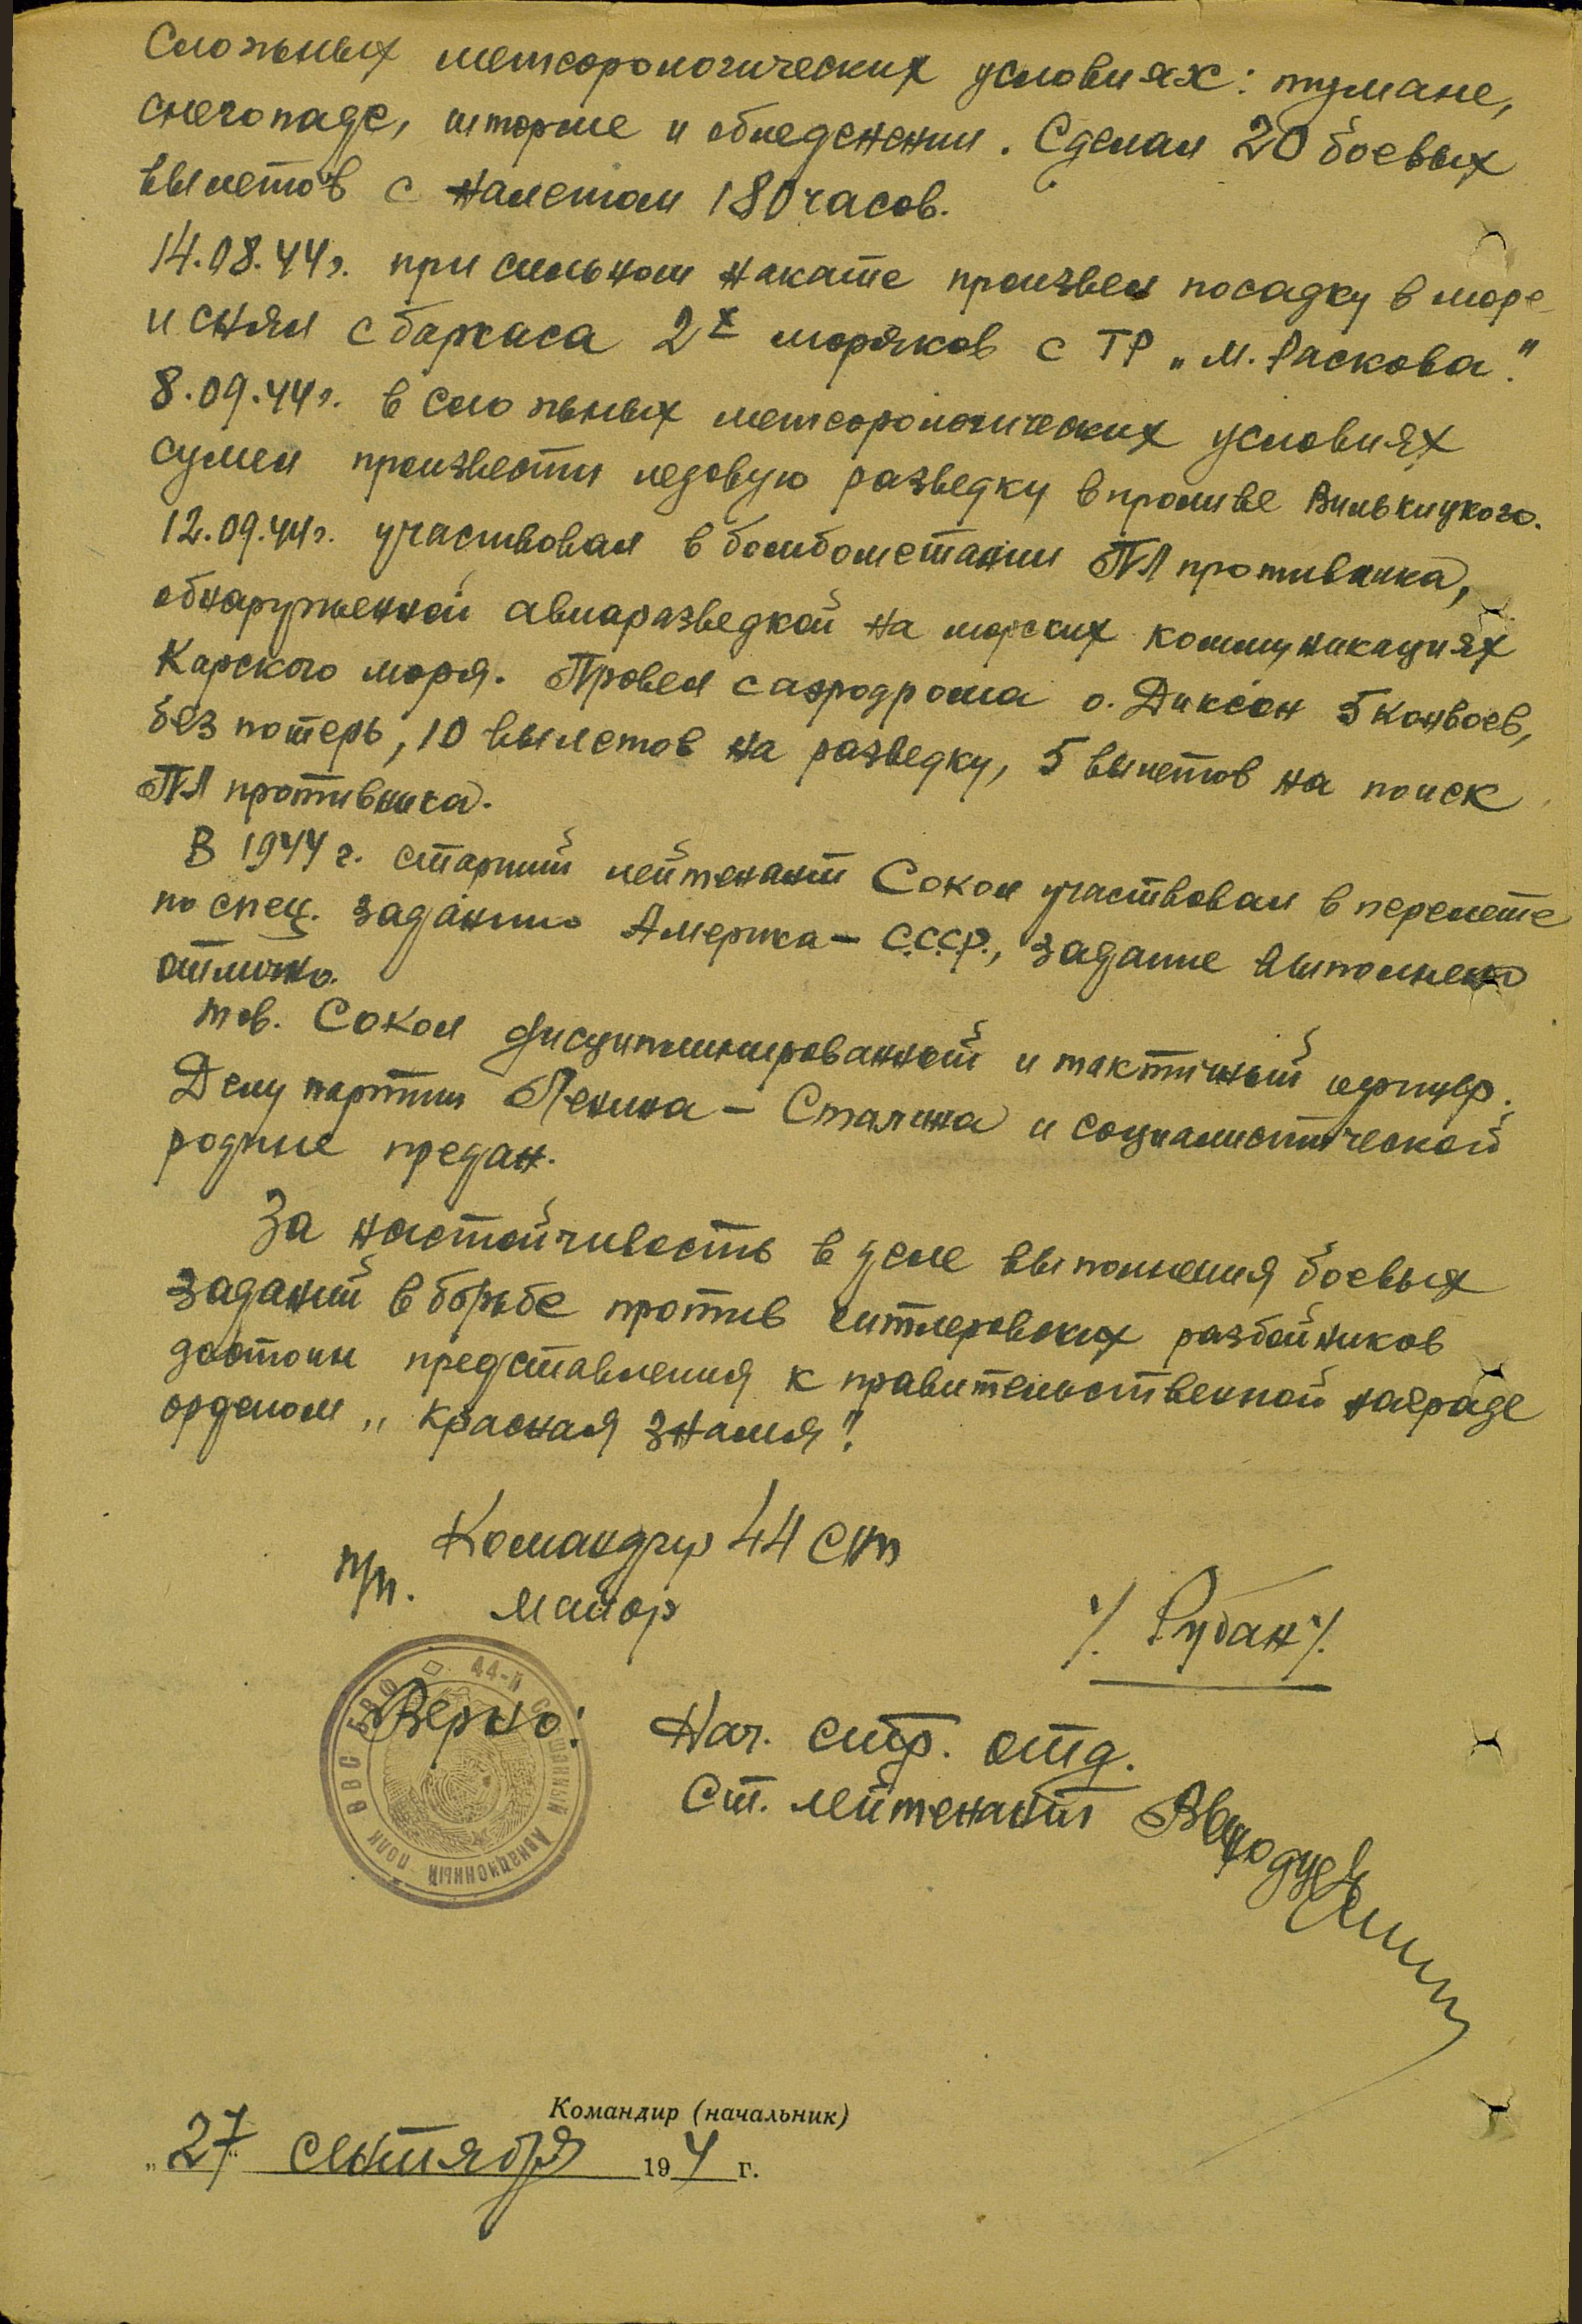 сложных метеорологических условиях: тумане,
снегопаде, шторме и обледенении. Сделал 20 боевых
вылетов с налетом 180 часов.
14.08.44г. при сильном накате произвел посадку в море
и снял с баркаса 2х моряков с ТР „М. Раскова".
8.09.44г. в сложных метеорологических условиях
сумел произвести ледовую разведку в проливе Вилькицкого.
12.09.44г. участвовал в бомбометании ПЛ противника,
обнаруженной авиаразведкой на морских коммуникациях
Карского моря. Провел с аэродрома о. Диксон 5 конвоев,
без потерь, 10 вылетов на разведку, 5 вылетов на поиск
ПЛ противника.
В 1944 г. старший лейтенант Сокол участвовал в перелете
по спец. заданию Америка – С.С.С.Р., задание выполнено
отлично.
тов. Сокол дисциплинированный и тактичный офицер.
Делу партии Ленина – Сталина и социалистической
родине предан.
За настойчивость в деле выполнения боевых
заданий в борьбе против гитлеровских разбойников
достоин представления к правительственной награде
орденом „Красная знамя".
Командир 44 сап
п/п. майор
/. Рубан /.
Верно: Нач. стр. отд.
Ст. лейтенант
44-й Смешанный Авиационный полк ВВС БВФ
Командир (начальник)
„27" сентября 194 4 г.